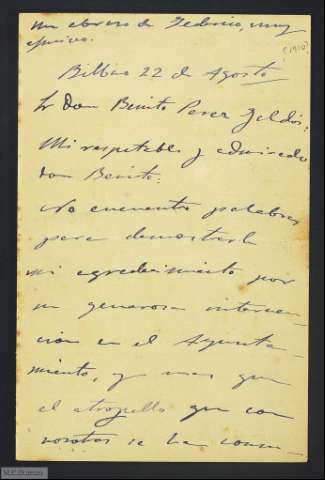 un abrazo de Federico, muy
efusivo.
(1910)
Bilbao 22 de Agosto
Sr Don Benito Perez Galdós:
Mi respetable y admirado
don Benito:
No encuentro palabras
para demostrarle
mi agradecimiento por
su generosa interven-
ción en el Ayunta-
miento, y mas que
el atropello que con
nosotros se ha consu-